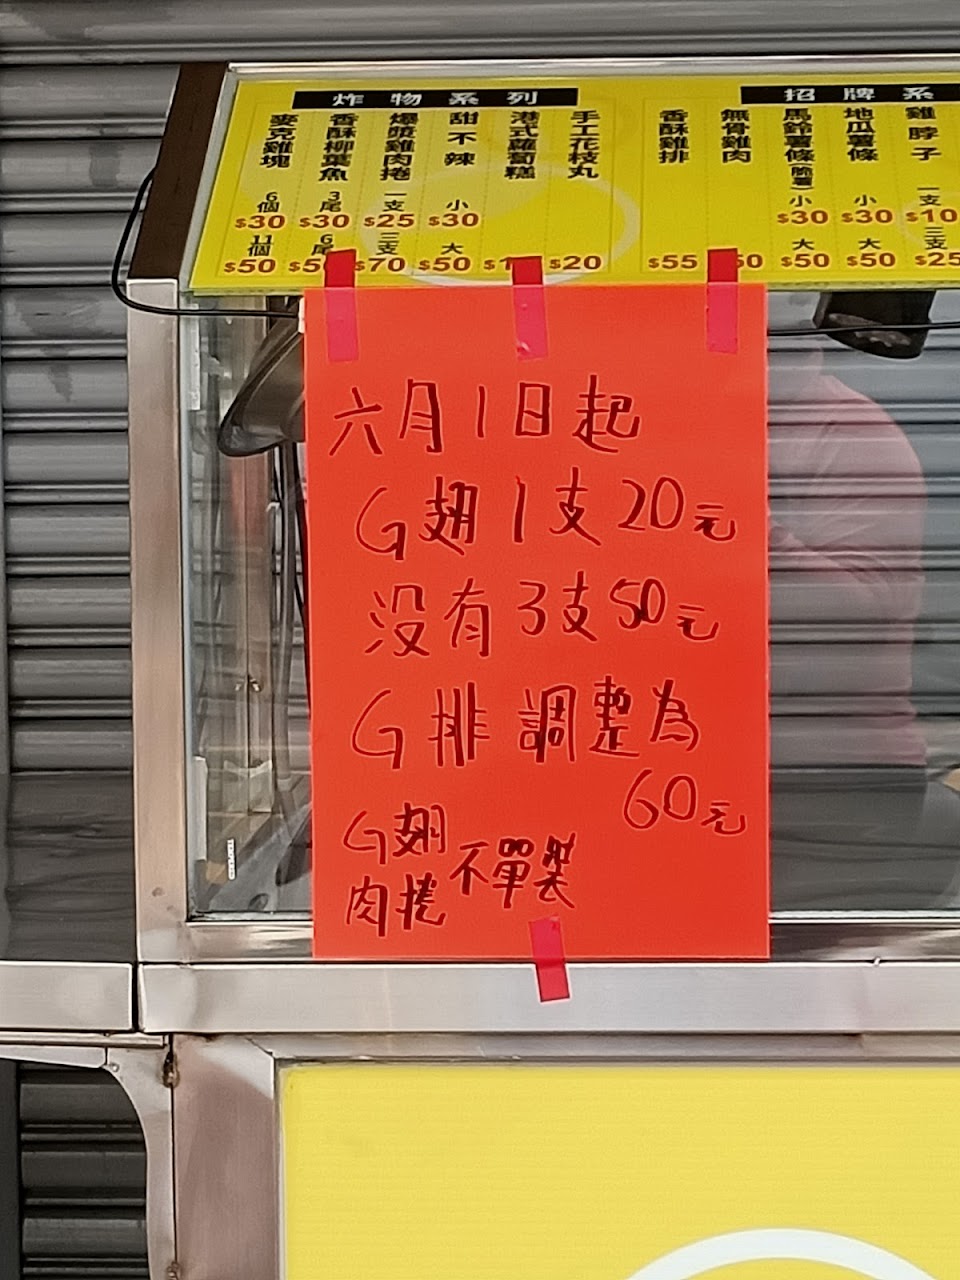 炸物系列
麥克雞塊 6個 $30 11個 $50
香酥柳葉魚 3尾 $30 6尾
爆漿雞肉捲 一支 $25 三支 $70
甜不辣 小 $30 大 $50
港式蘿蔔糕
手工花枝丸 $20
招牌系
香酥雞排 $55
無骨雞肉
馬鈴薯條(脆薯) 小 $30 大 $50
地瓜薯條 小 $30 大 $50
雞脖子 一支 $10 三支 $25
六月1日起
G翅1支20元
没有3支50元
G排調整為
60元
G翅
肉捲 不單裝